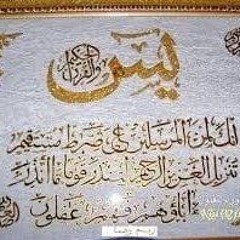 يس
والقرآن الحكيم
إنك لمن المرسلين على صرط مستقيم
تنزيل العزيز الرحيم لتنذر قوما ما أنذر
ءاباؤهم فهم غفلون